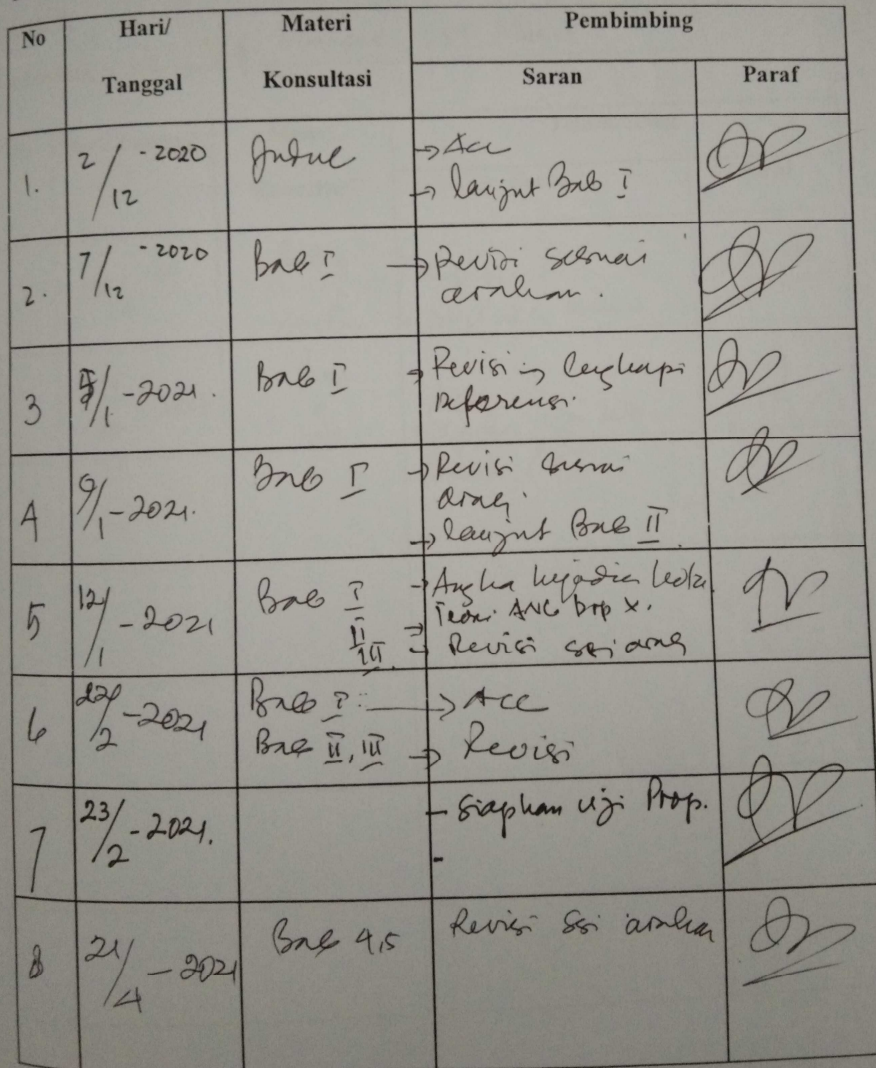 No Hari/ Materi Pembimbing
Tanggal Konsultasi Saran Paraf
1. 2/12 - 2020 Judul → Acc
→ lanjut Bab I
2. 7/12 - 2020 Bab I → Revisi sesuai
arahan.
3 /1 - 2021. Bab I → Revisi → lengkapi
referensi.
4 9/1 - 2021. Bab I → Revisi sesuai
arah.
→ lanjut Bab II
5 12/1 - 2021 Bab I → Angka kejadian
II → Teori ANC
III → Revisi ssi arah
6 /2 - 2021 Bab I → Acc
Bab II, III → Revisi
7 23/2 - 2021. - Siapkan uji Prop.
-
8 21/4 - 2021 Bab 4,5 Revisi ssi arahan